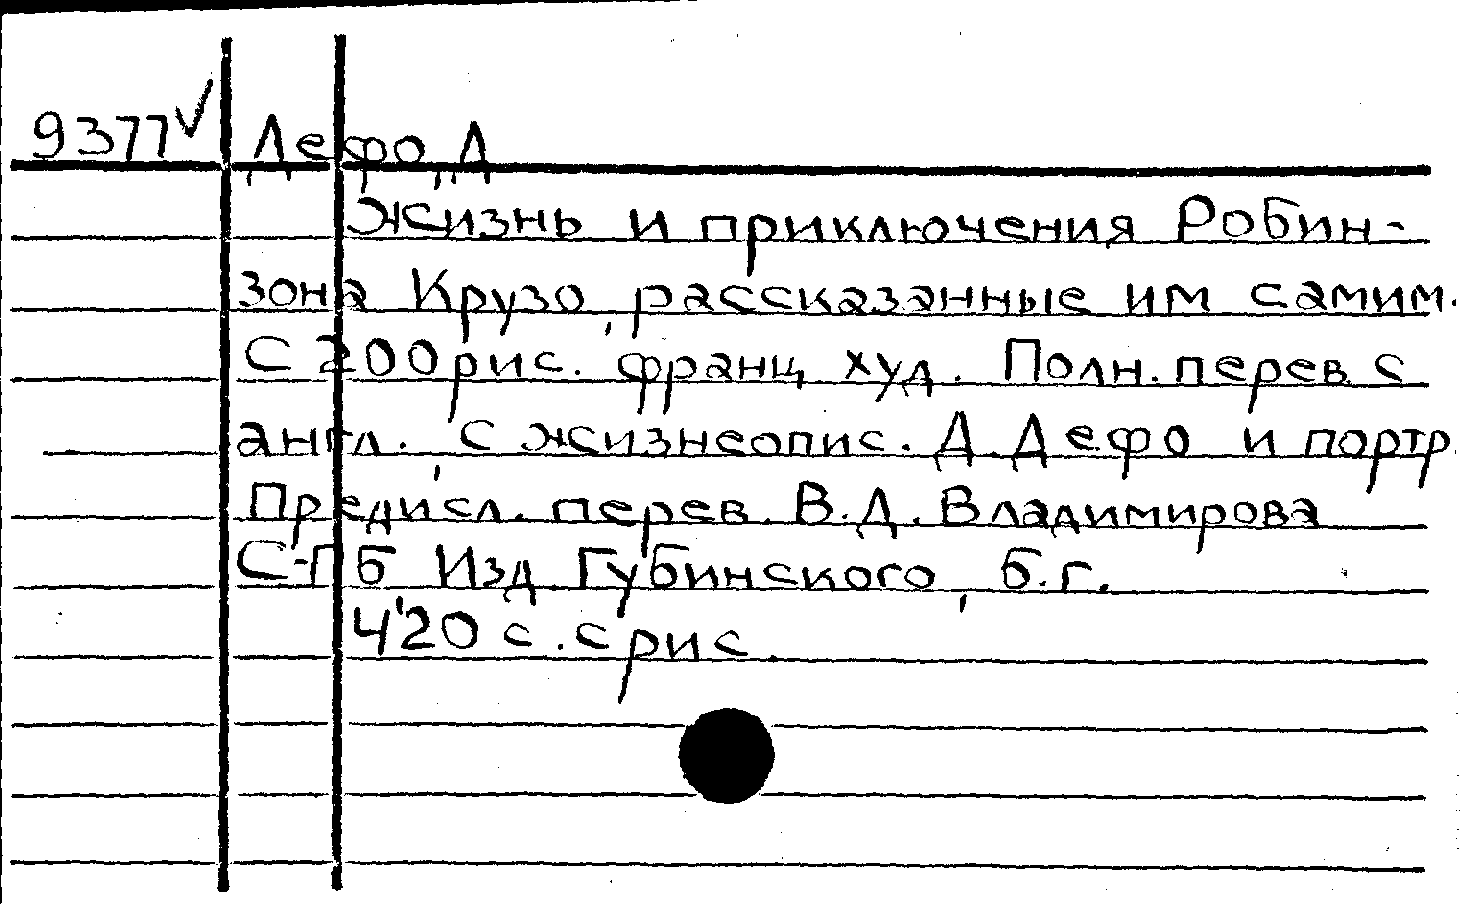 9377✓ Дефо, Д
Жизнь и приключения Робин-
зона Крузо, рассказанные им самим.
С 200 рис. франц. худ. Полн. перев. с
англ., с жизнеопис. Д. Дефо и портр
Предисл. перев. В.Д. Владимирова
С-ПБ Изд. Губинского, б.г.
420 с. с рис.